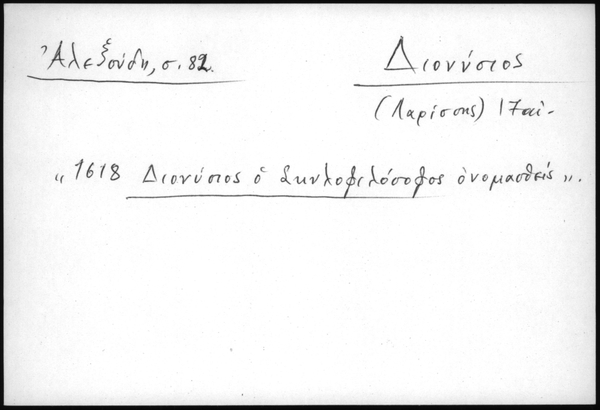 Ἀλεξούδη, σ. 82.
Διονύσιος
(Λαρίσσης) 17 αἰ.
„ 1618 Διονύσιος ὁ Σκυλοφιλόσοφος ὀνομασθείς „.